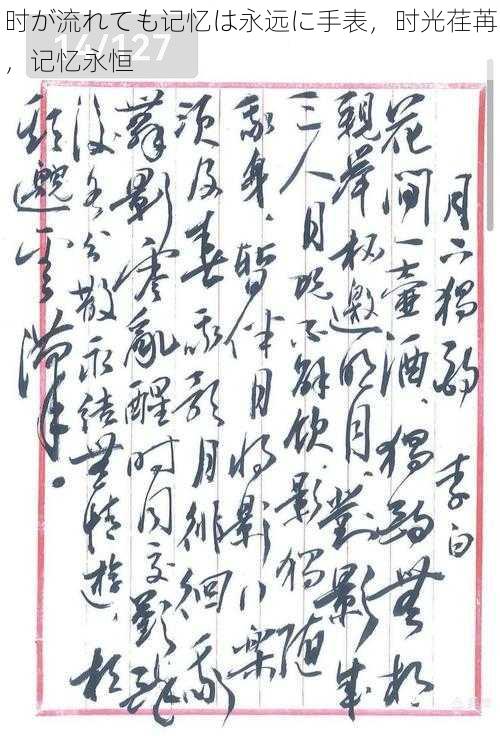 时が流れても记忆は永远に手表，时光荏苒
，记忆永恒
14/127
月下獨酌 李白
花間一壺酒、獨酌無相
親舉杯邀明月、對影成
三人月既不解飲、影獨随
我身、暫伴月將影行樂
須及春我歌月徘徊我
舞影零亂醒時同交歡醉
後各分散永結無情遊、相
期邈雲漢。